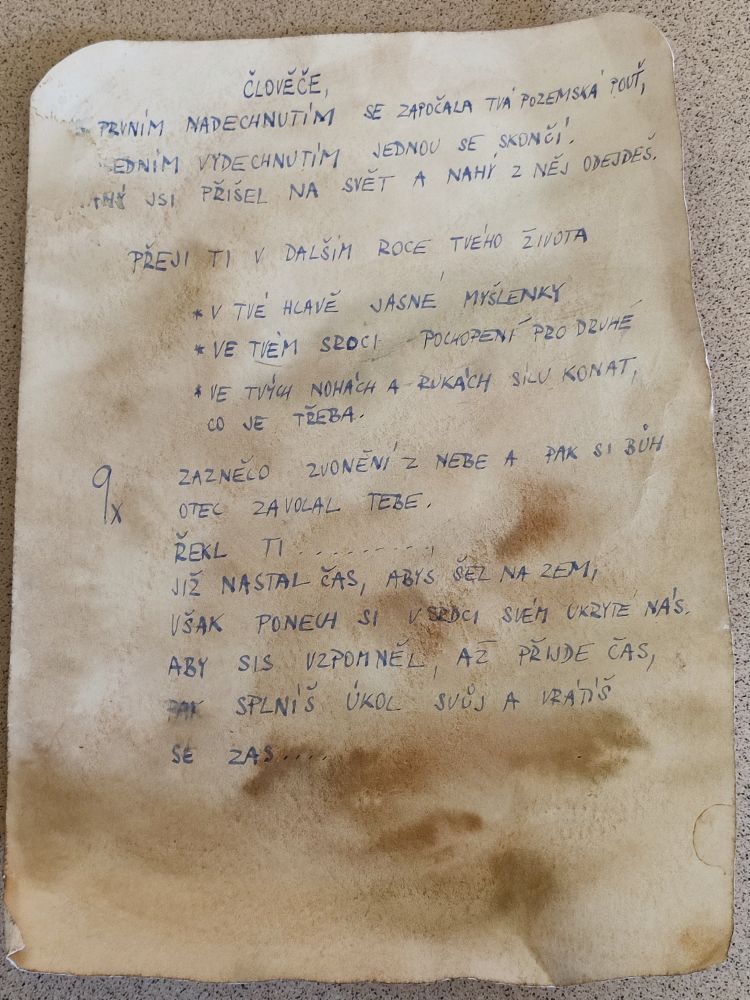 ČLOVĚČE,
PRVNÍM NADECHNUTÍM SE ZAPOČALA TVÁ POZEMSKÁ POUŤ,
VÝDECHNUTÍM JEDNOU SE SKONČÍ.
JSI PŘIŠEL NA SVĚT A NAHÝ Z NĚJ ODEJDEŠ.
PŘEJI TI V DALŠÍM ROCE TVÉHO ŽIVOTA
* V TVÉ HLAVĚ JASNÉ MYŠLENKY
* VE TVÉM SRDCI POCHOPENÍ PRO DRUHÉ
* VE TVÝCH NOHÁCH A RUKÁCH SÍLU KONAT,
CO JE TŘEBA.
9x ZAZNĚLO ZVONĚNÍ Z NEBE A PAK SI BŮH
OTEC ZAVOLAL TEBE.
ŘEKL TI ..........,
JIŽ NASTAL ČAS, ABYS ŠEL NA ZEM,
VŠAK PONECH SI V SRDCI SVÉM UKRYTÉ NÁS.
ABY SIS VZPOMNĚL, AŽ PŘIJDE ČAS,
PAK SPLNÍŠ ÚKOL SVŮJ A VRÁTÍŠ
SE ZAS....